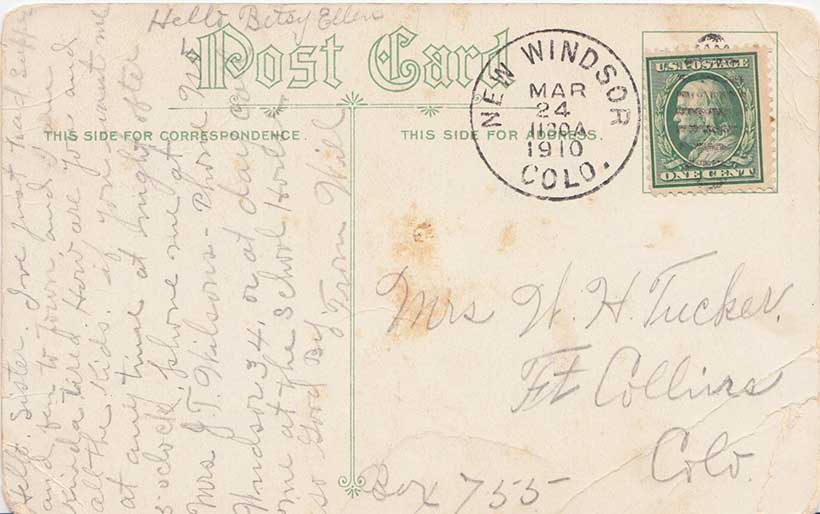 Hello Betsy Ellen
Post Card
THIS SIDE FOR CORRESPONDENCE.
THIS SIDE FOR ADDRESS.
NEW WINDSOR
MAR
24
1910
COLO.
U.S. POSTAGE
ONE CENT
Hello. Sister. I've just had supper
and been to town and I am
kinda tired. How are you and
all the kids. if you want me
at any time at night after
5 o'clock, phone me at
Mrs J. T. Wilsons - Phone No
Windsor 34, or at day
me at the School House
so Good By
From Will
Mrs W. H. Tucker.
Ft Collins
Colo.
Box 755